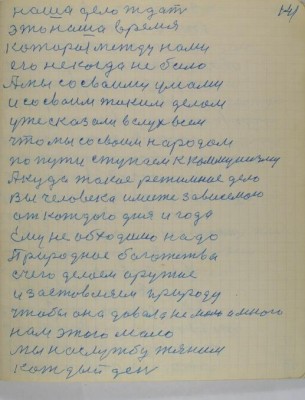 141
наша дело ждать
это наша время
которая между нами
его некогда не было
А мы со своими умами
и со своим таким делом
уже сказали вслух всем
что мы со своим народом
по пути ступаем к коммунизму
А куда такое режимное дело
Вы человека имеите зависемою
от каждого дня и года
Ему не обходимо надо
Природное богатства
с чего делаем оружие
и заставляем природу
чтобы она довала не мало а много
нам этого мало
мы на службу тянем
каждый ден